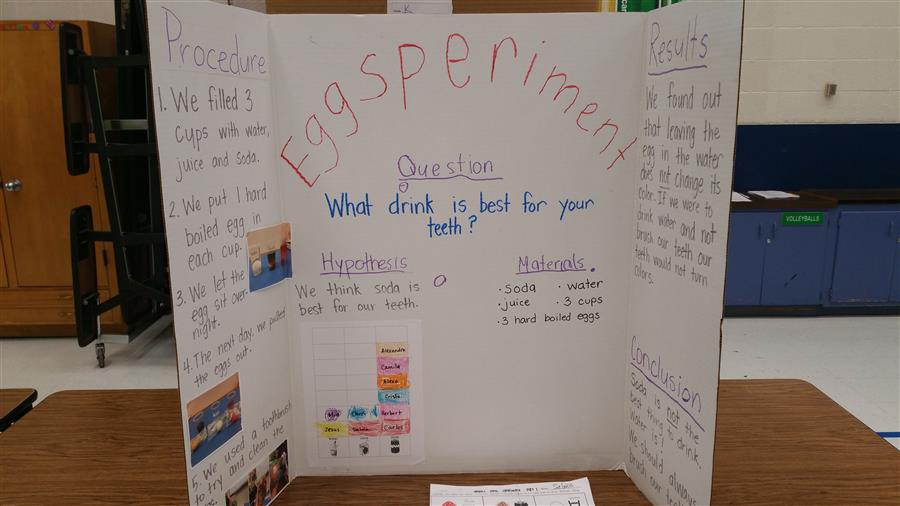 - K
Procedure
1. We filled 3
cups with water,
juice and soda.
2. We put 1 hard
boiled egg in
each cup.
3. We let the
egg sit over-
night.
4. The next day, we pulled
the eggs out.
5. We used a toothbrush
to try and clean the
Eggsperiment
Question
What drink is best for your
teeth?
Hypothesis
We think soda is
best for our teeth.
Alexandra
Camila
Alexa
Cristal
Herbert
Jesus
Carlos
Materials
· soda · water
· juice · 3 cups
· 3 hard boiled eggs
Results
We found out
that leaving the
egg in the water
does not change its
color. If we were to
drink water and not
brush our teeth our
teeth would not turn
colors.
Conclusion
Soda is not the
best thing to drink.
Water is!
We should always
brush our teeth
VOLLEYBALLS